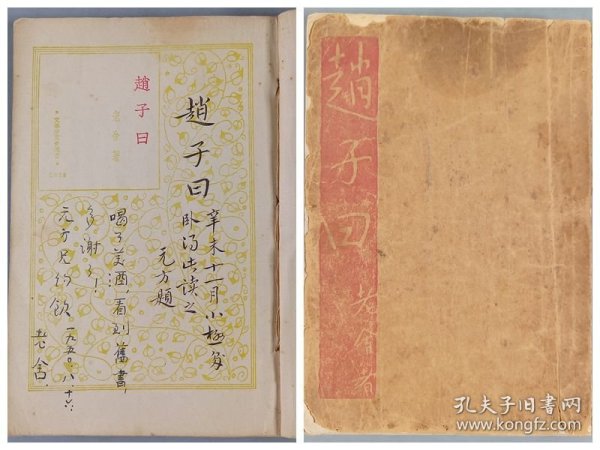 趙子曰
老舍著
趙子曰
辛未十一月小極負
臥汤出读之
元方題
喝了美酒,看到舊書,
多謝了!
元方兄約飲
一九五〇、八、十六
老舍
趙子曰
老舍著
孔夫子旧书网
www.kongfz.com